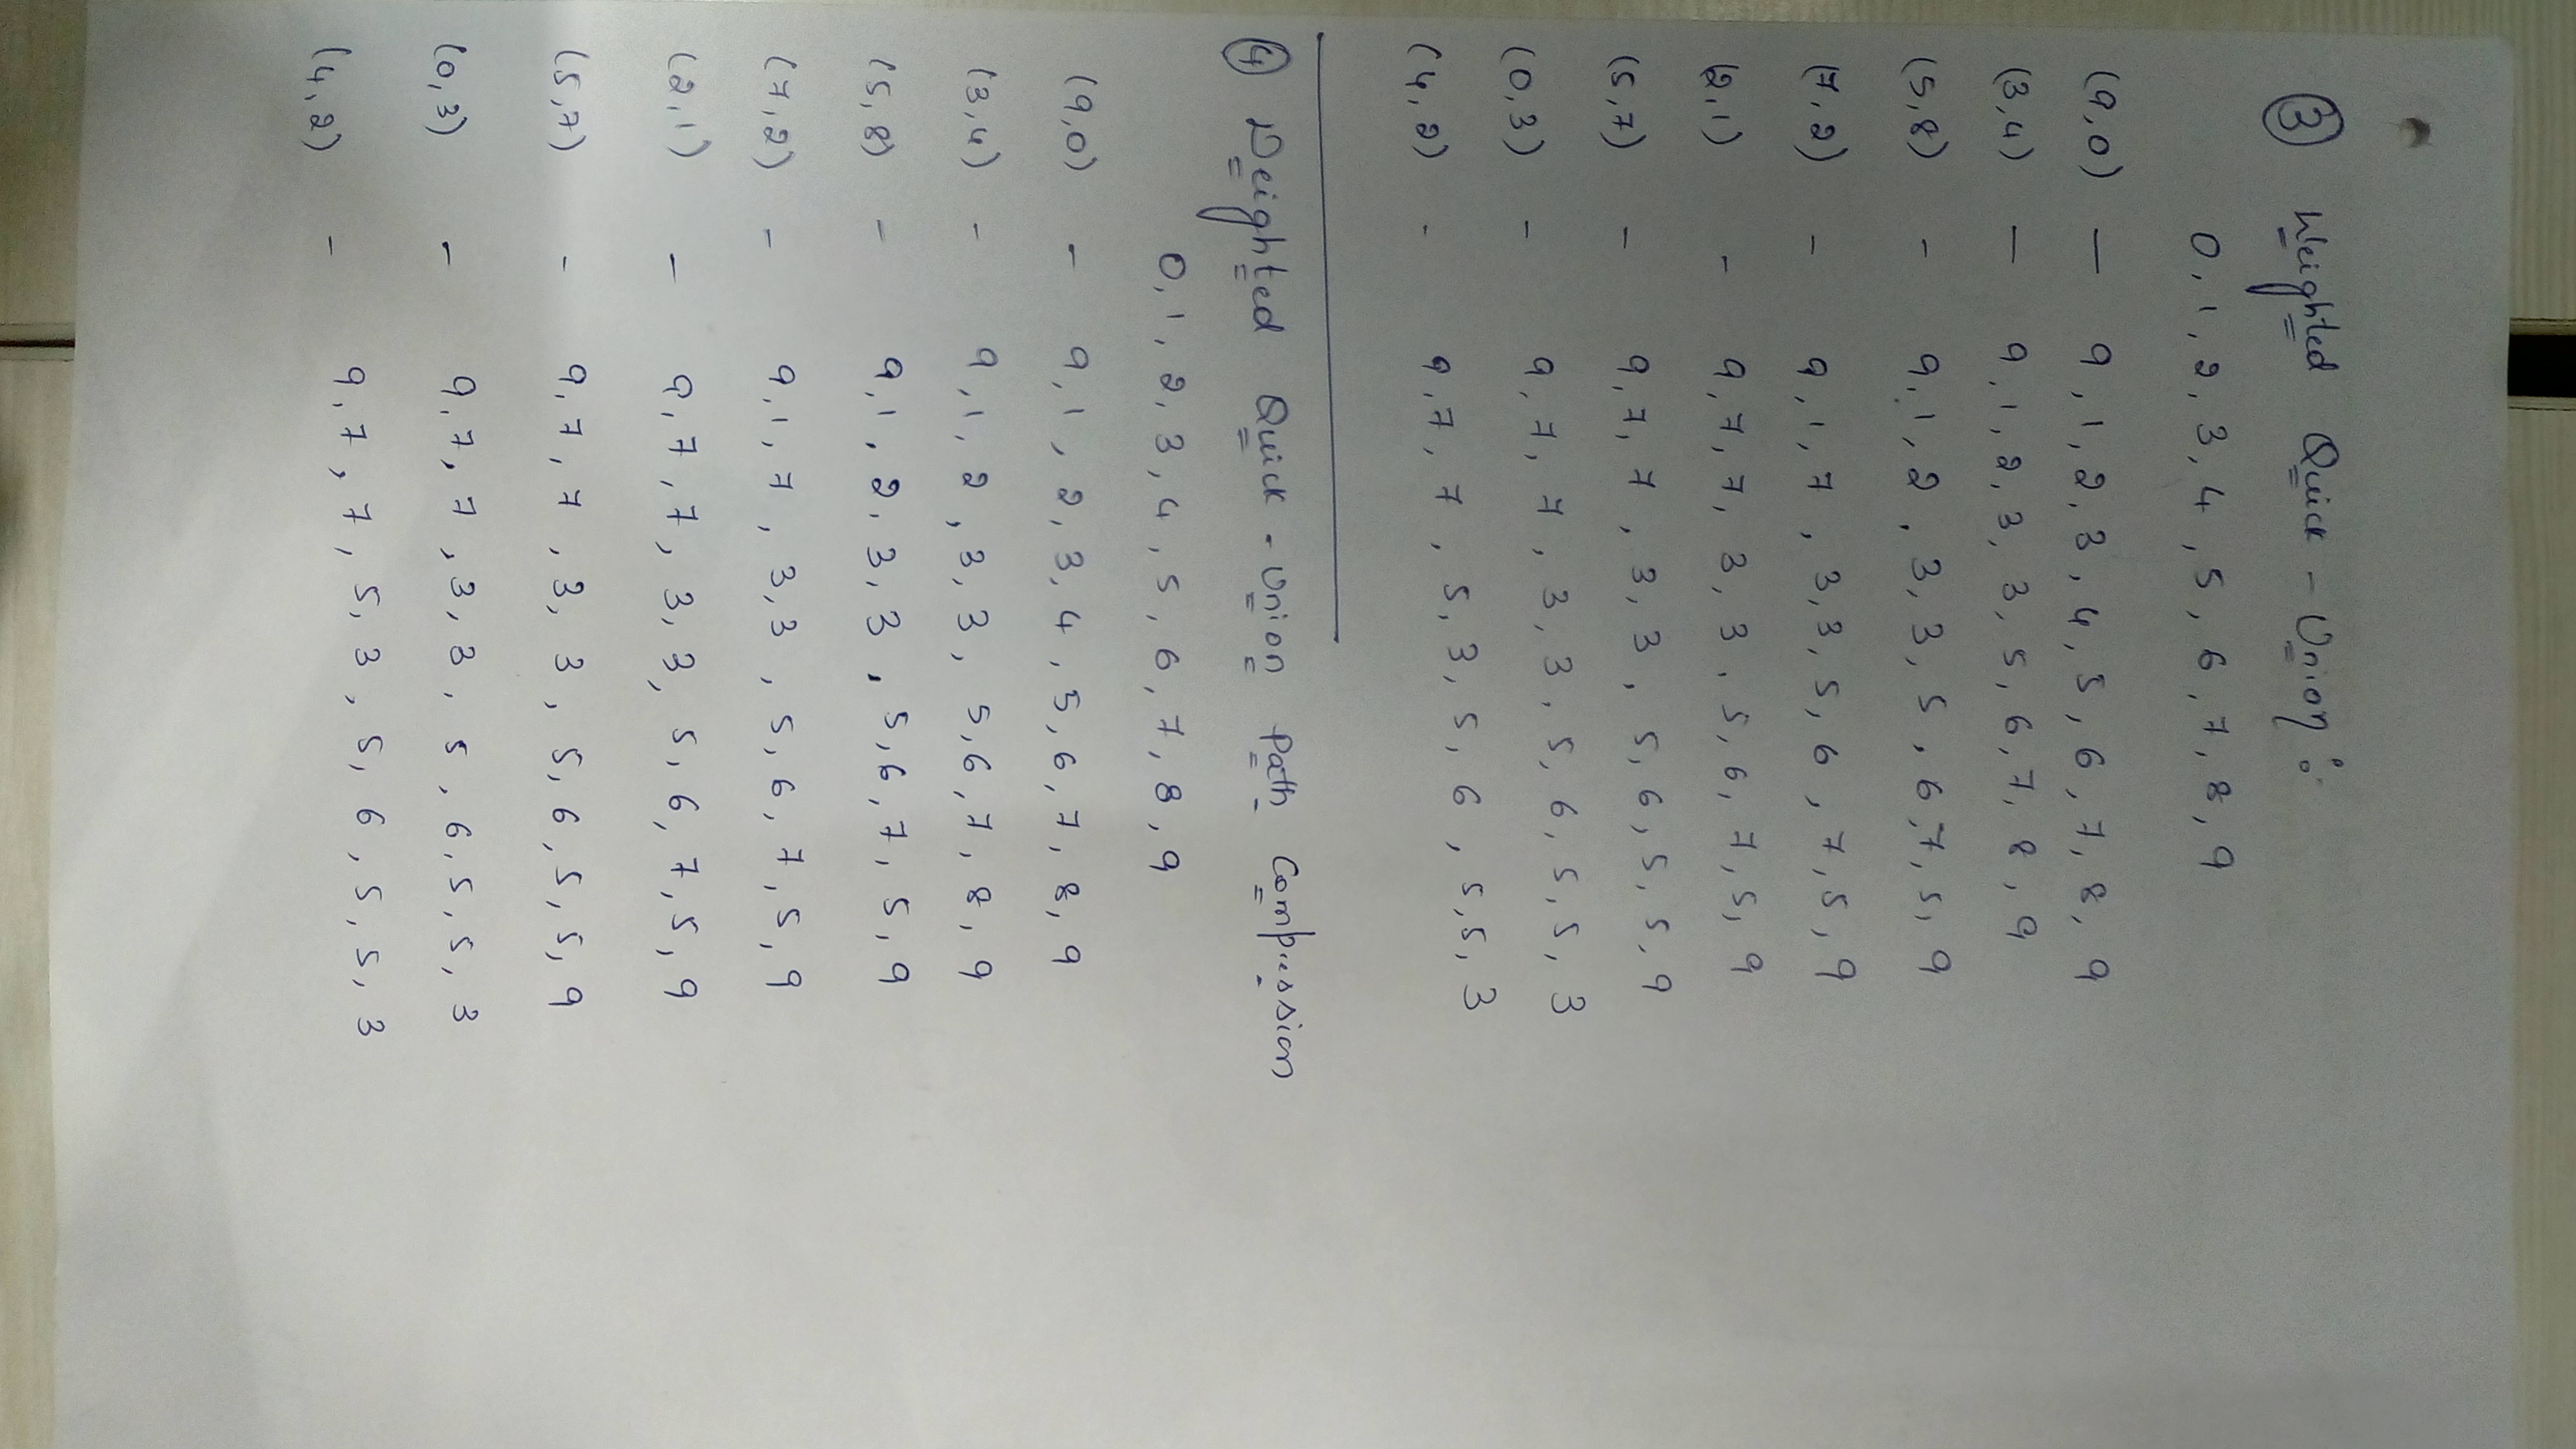 ③ Weighted Quick - Union :
0, 1, 2, 3, 4, 5, 6, 7, 8, 9
(9,0) — 9, 1, 2, 3, 4, 5, 6, 7, 8, 9
(3,4) — 9, 1, 2, 3, 3, 5, 6, 7, 8, 9
(5,8) - 9, 1, 2, 3, 3, 5, 6, 7, 5, 9
(7,2) - 9, 1, 7, 3, 3, 5, 6, 7, 5, 9
(2,1) - 9, 7, 7, 3, 3, 5, 6, 7, 5, 9
(5,7) - 9, 7, 7, 3, 3, 5, 6, 5, 5, 9
(0,3) - 9, 7, 7, 3, 3, 5, 6, 5, 5, 3
(4,2) - 9, 7, 7, 5, 3, 5, 6, 5, 5, 3
④ Weighted Quick - Union Path Compression
0, 1, 2, 3, 4, 5, 6, 7, 8, 9
(9,0) - 9, 1, 2, 3, 4, 5, 6, 7, 8, 9
(3,4) - 9, 1, 2, 3, 3, 5, 6, 7, 8, 9
(5,8) - 9, 1, 2, 3, 3, 5, 6, 7, 5, 9
(7,2) - 9, 1, 7, 3, 3, 5, 6, 7, 5, 9
(2,1) - 9, 7, 7, 3, 3, 5, 6, 7, 5, 9
(5,7) - 9, 7, 7, 3, 3, 5, 6, 5, 5, 9
(0,3) - 9, 7, 7, 3, 3, 5, 6, 5, 5, 3
(4,2) - 9, 7, 7, 5, 3, 5, 6, 5, 5, 3